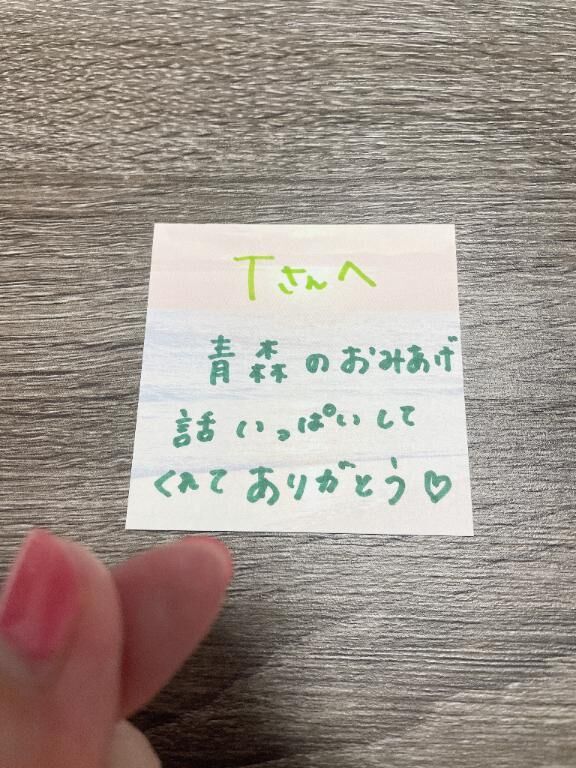 Tさんへ
青森のおみあげ
話いっぱいして
くれてありがとう♡